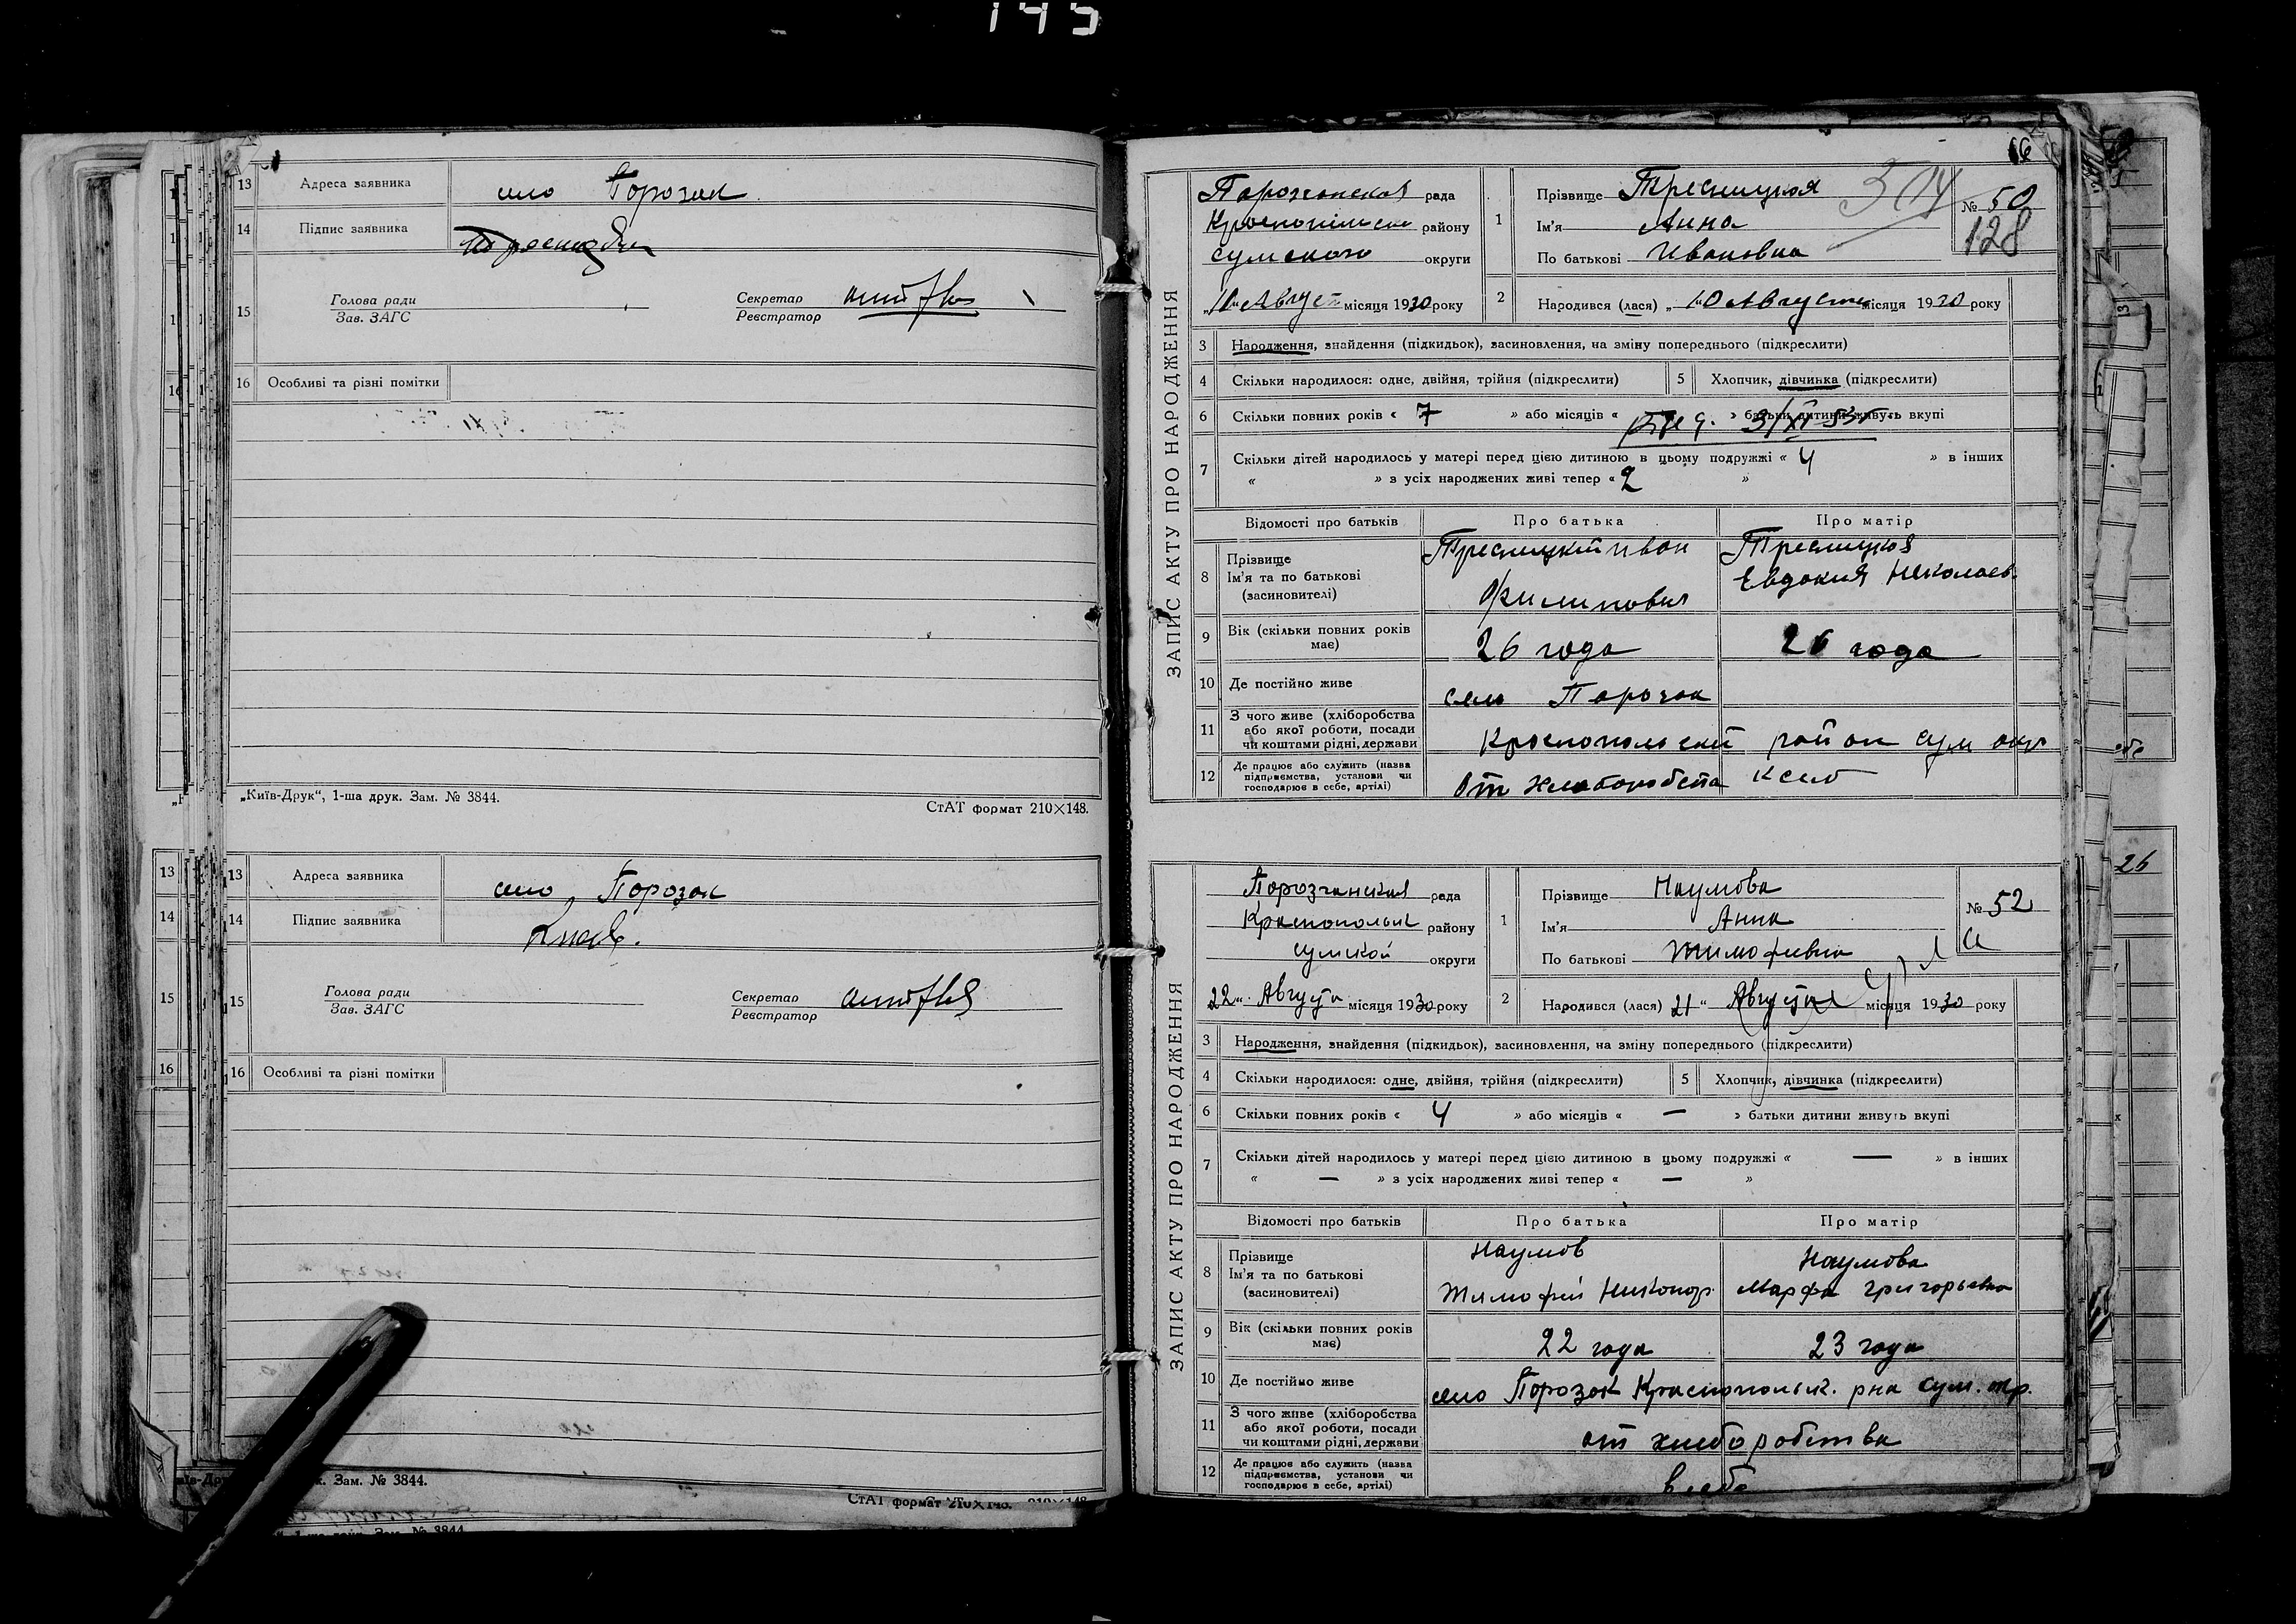 145
13 Адреса заявника село Порозок
14 Підпис заявника
15 Голова ради
Зав. ЗАГС
Секретар
Реєстратор
16 Особливі та різні помітки
„Київ-Друк“, 1-ша друк. Зам. № 3844.
СтАТ формат 210×148.
13 Адреса заявника село Порозок
14 Підпис заявника
15 Голова ради
Зав. ЗАГС
Секретар
Реєстратор
16 Особливі та різні помітки
Зам. № 3844.
СтАТ формат 210×148.
66
ЗАПИС АКТУ ПРО НАРОДЖЕННЯ
рада
району
сумского округи
„10“ Август місяця 1930 року
1 Прізвище Тресницкая
Ім'я Анна
По батькові Ивановна
№ 50
128
2 Народився (лася) „10 Августа місяця 1930 року
3 Народження, знайдення (підкидьок), засиновлення, на зміну попереднього (підкреслити)
4 Скільки народилося: одне, двійня, трійня (підкреслити)
5 Хлопчик, дівчинка (підкреслити)
6 Скільки повних років « 7 » або місяців « » батьки дитини живуть вкупі
7 Скільки дітей народилось у матері перед цією дитиною в цьому подружжі « 4 » в інших
« » з усіх народжених живі тепер « 2 »
Відомості про батьків Про батька Про матір
8 Прізвище
Ім'я та по батькові
(засиновителі)
Тресницкий Иван
Филипович
Тресницкая
Евдокия Николаев.
9 Вік (скільки повних років має) 26 года 26 года
10 Де постійно живе село Порозок
11 З чого живе (хліборобства
або якої роботи, посади
чи коштами рідні, держави
район сум окр
12 Де працює або служить (назва
підприємства, установи чи
господарює в себе, артілі)
От хлеборобства
ЗАПИС АКТУ ПРО НАРОДЖЕННЯ
Порозчанская рада
Краснопольск району
сумской округи
22 „ Августа місяця 1930 року
1 Прізвище Наумова
Ім'я Анна
По батькові Тимофивна
№ 52
2 Народився (лася) 21 „ Августа місяця 1930 року
3 Народження, знайдення (підкидьок), засиновлення, на зміну попереднього (підкреслити)
4 Скільки народилося: одне, двійня, трійня (підкреслити)
5 Хлопчик, дівчинка (підкреслити)
6 Скільки повних років « 4 » або місяців « — » батьки дитини живуть вкупі
7 Скільки дітей народилось у матері перед цією дитиною в цьому подружжі « — » в інших
« — » з усіх народжених живі тепер « — »
Відомості про батьків Про батька Про матір
8 Прізвище
Ім'я та по батькові
(засиновителі)
Наумов
Тимофий Никонор
Наумова
Марфа Григорьевна
9 Вік (скільки повних років має) 22 года 23 года
10 Де постійно живе село Порозок Краснопольск. рна Сум. окр.
11 З чого живе (хліборобства
або якої роботи, посади
чи коштами рідні, держави
от хлеборобства
12 Де працює або служить (назва
підприємства, установи чи
господарює в себе, артілі)
в себе